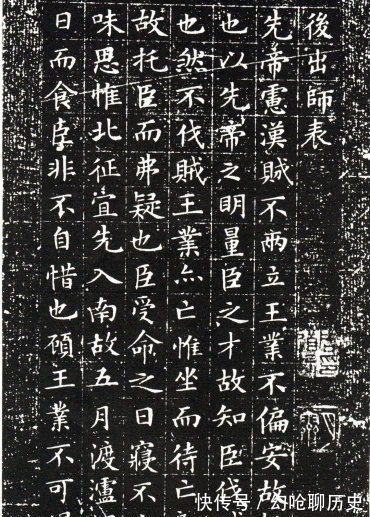 後出師表
先帝慮漢賊不兩立王業不偏安故
也以先帝之明量臣之才故知臣伐
也然不伐賊王業亦亡惟坐而待亡
故托臣而弗疑也臣受命之日寢不
味思惟北征宜先入南故五月渡瀘
日而食臣非不自惜也顧王業不可
快传号/幻呛聊历史